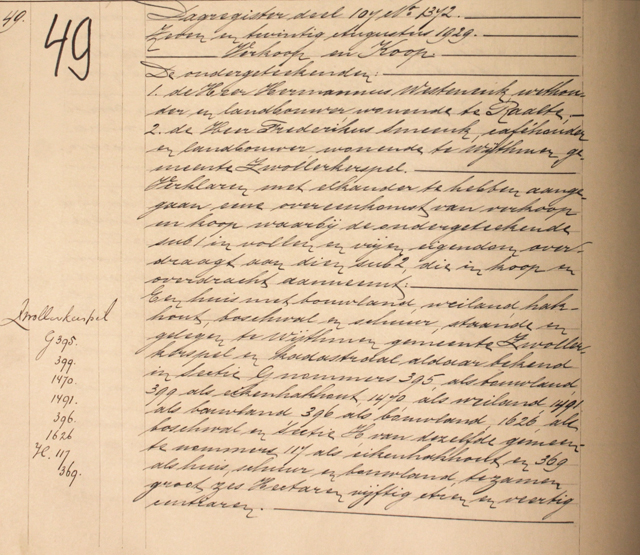 49.
49
Dagregister deel 107 No 1372.
Zeven en twintig Augustus 1929.
Verkoop en Koop.
De ondergeteekenden:
1. de Heer Hermannus Westenenk, wethou-
der en landbouwer wonende te Raalte;
2. de Heer Frederikus Smeenk, caféhouder
en landbouwer wonende te Wijthmen, ge-
meente Zwollerkerspel.
Verklaren met elkander te hebben aange-
gaan eene overeenkomst van verkoop
en koop waarbij de ondergeteekende
sub 1 in vollen en vrijen eigendom over-
draagt aan dien sub 2, die in koop en
overdracht aanneemt:
Een huis met bouwland, weiland, hak-
hout, boschwal en schuur, staande en
gelegen te Wijthmen gemeente Zwoller-
kerspel en kadastraal aldaar bekend
in sectie G nummers 395, als bouwland,
399 als eikenhakhout, 1470, als weiland, 1491
als bouwland 396 als bouwland, 1626, als
boschwal en sectie H van dezelfde gemeen-
te nummers 117 als eikenhakhout en 369
als huis, schuur en bouwland, tezamen
groot zes Hectaren vijftig aren en veertig
centiaren.
Zwollerkerspel
G 395.
399.
1470.
1491.
396.
1626
H. 117
369.